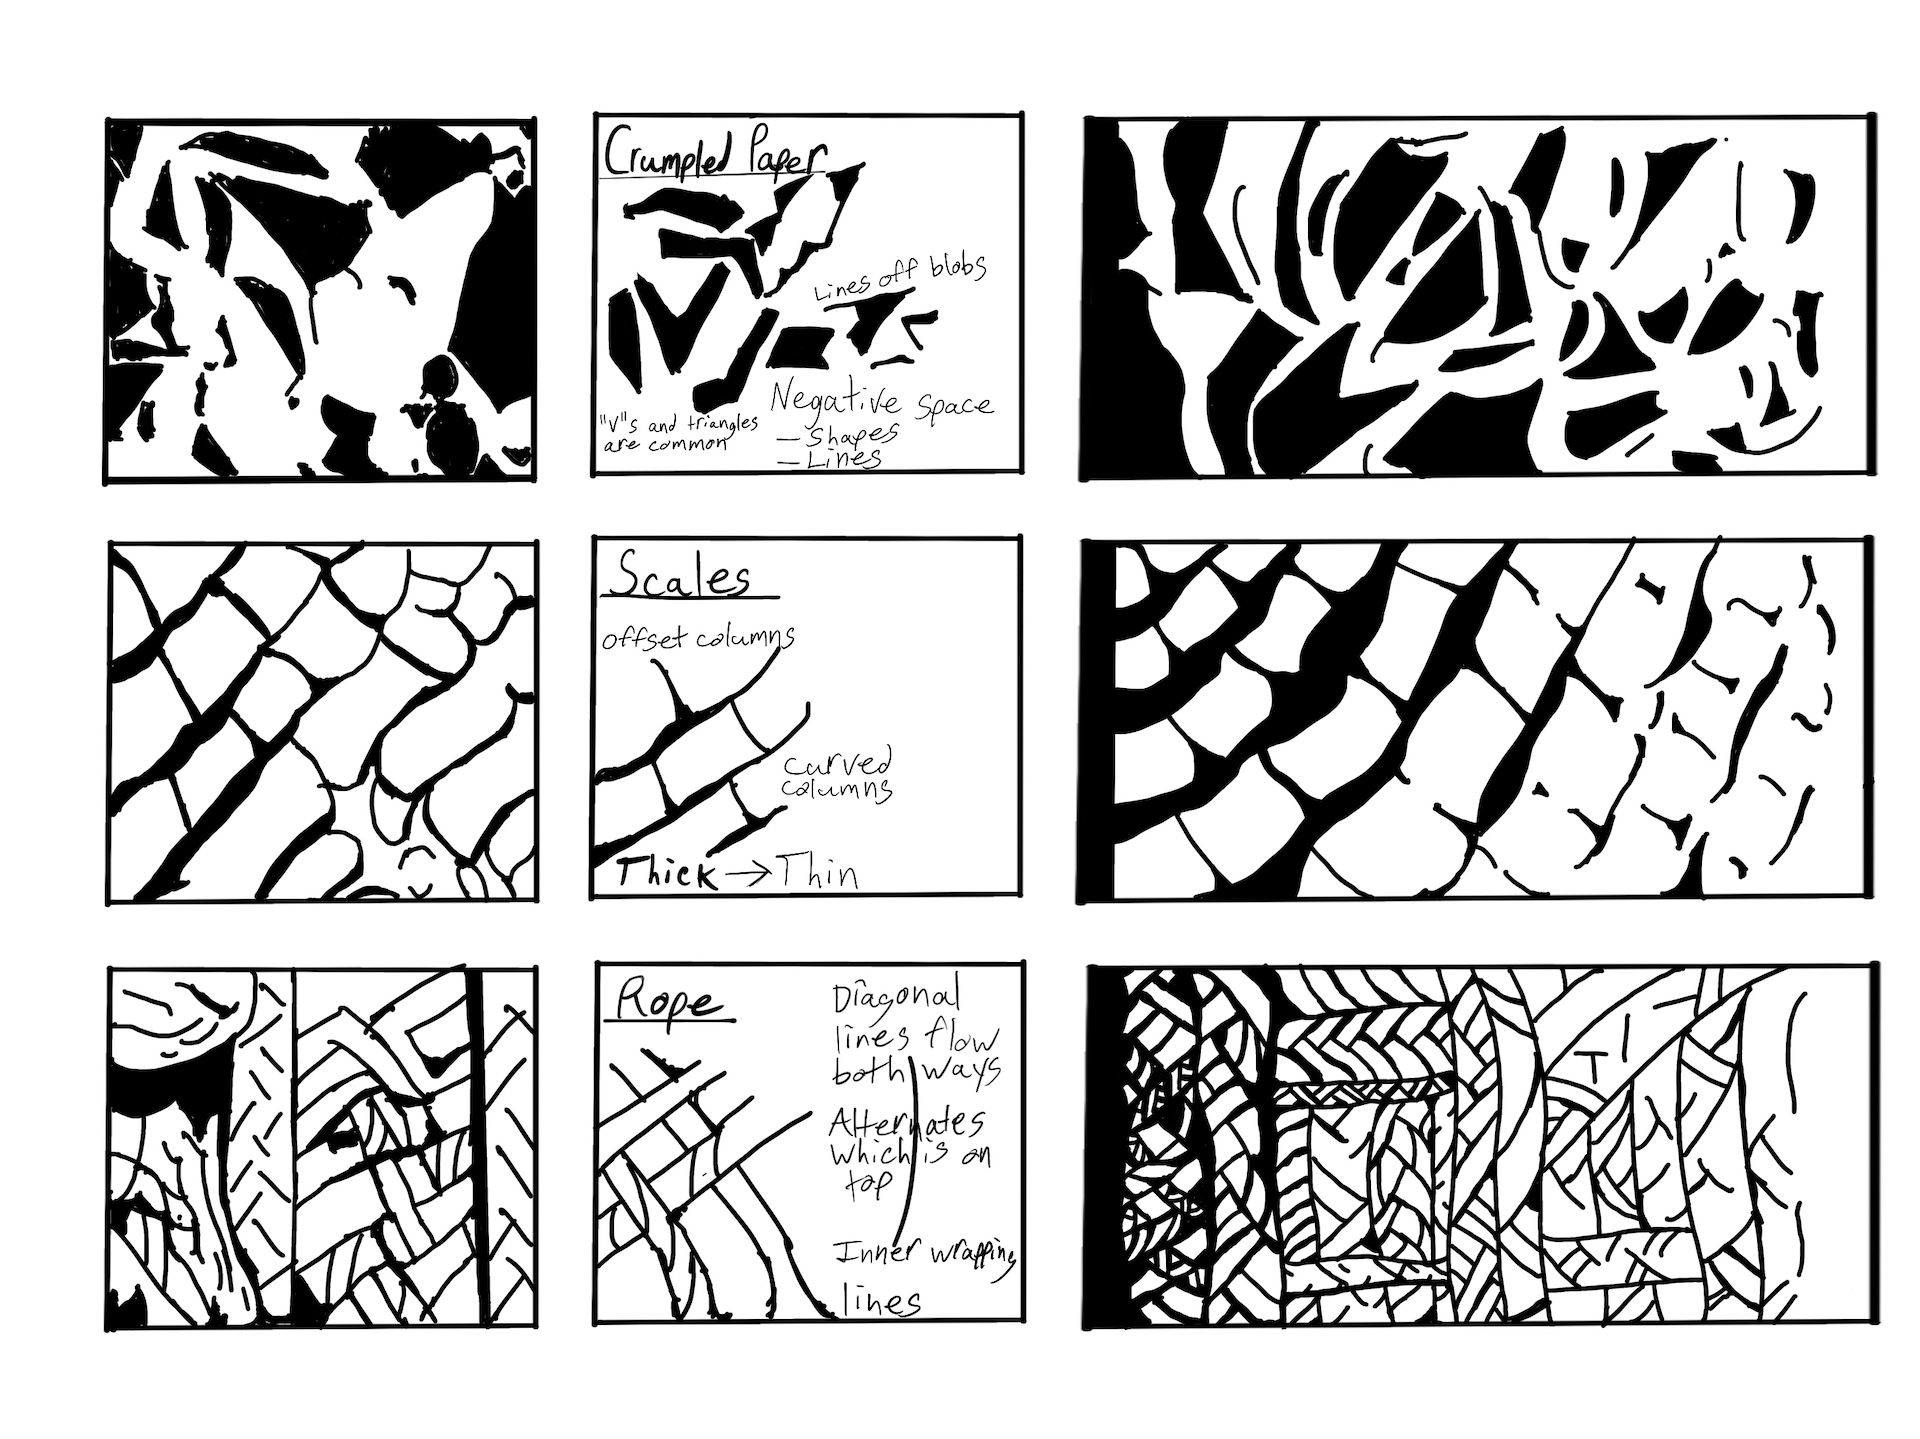 Crumpled Paper
Lines off blobs
"V"s and triangles
are common
Negative Space
– Shapes
– Lines
Scales
offset columns
curved
columns
Thick → Thin
Rope
Diagonal
lines flow
both ways
Alternates
which is on
top
Inner wrapping
lines